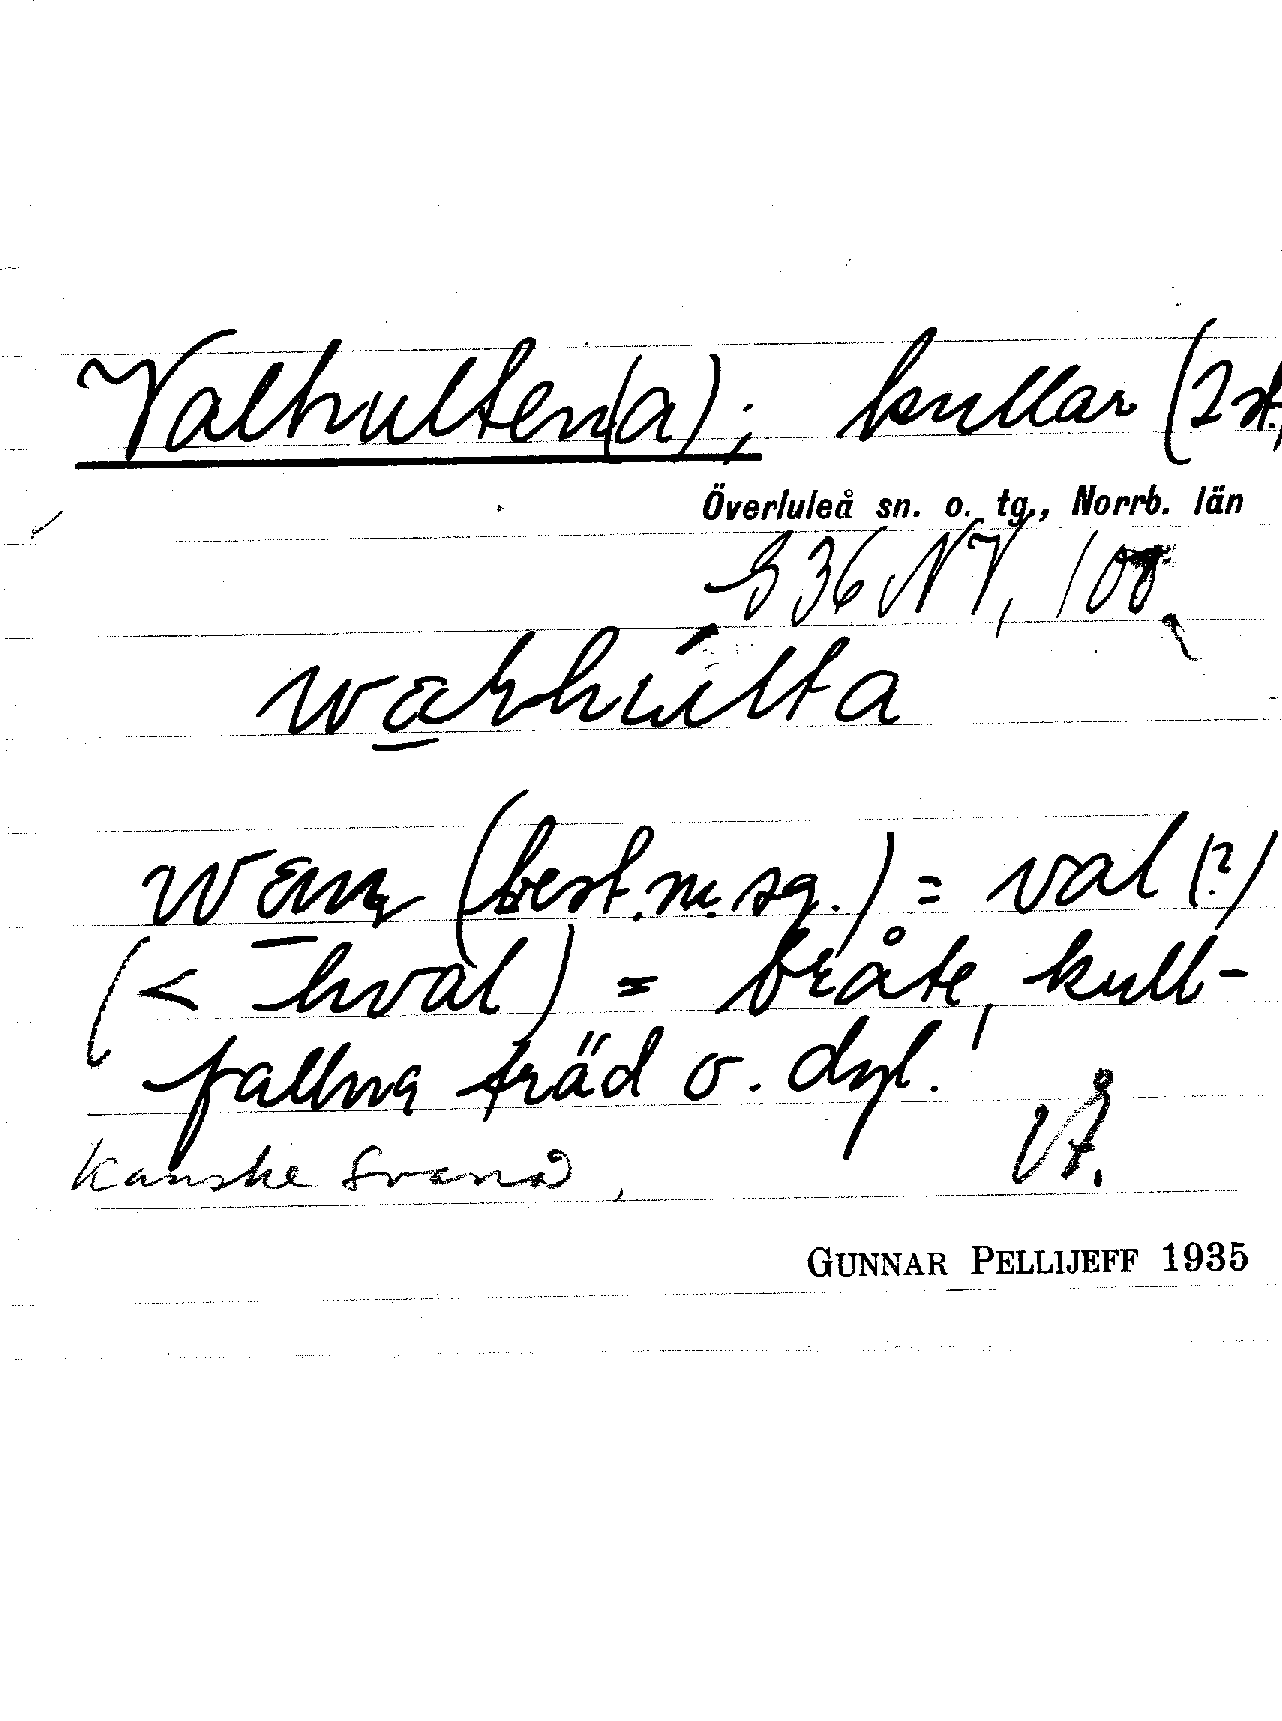 Valhulten(a); kullar (2 st.,
Överluleå sn. o. tg., Norrb. län
S 36 NV, 100
(best.m.sg.) = val (?)
(< hval) = bråte, kull-
fallna träd o. dyl.
Kanske Svanå, VÅ.
GUNNAR PELLIJEFF 1935